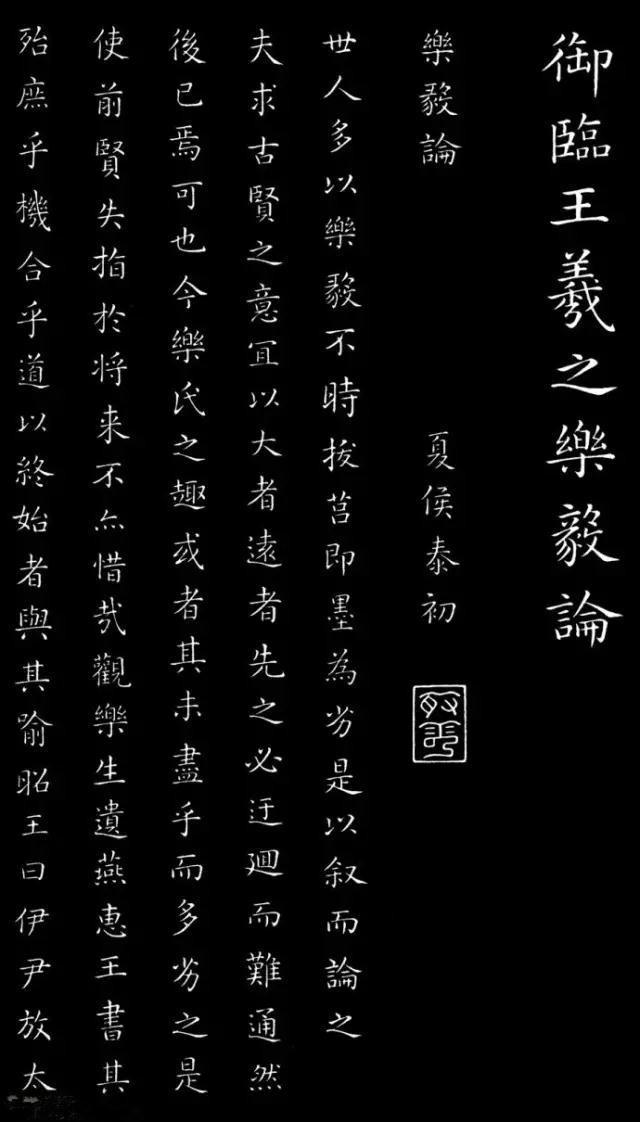 御臨王羲之樂毅論
樂毅論
夏侯泰初
世人多以樂毅不時拔莒即墨為劣是以叙而論之
夫求古賢之意宜以大者遠者先之必迂迴而難通然
後已焉可也今樂氏之趣或者其未盡乎而多劣之是
使前賢失指於将来不亦惜哉觀樂生遺燕惠王書其
殆庶乎機合乎道以終始者與其喻昭王曰伊尹放太